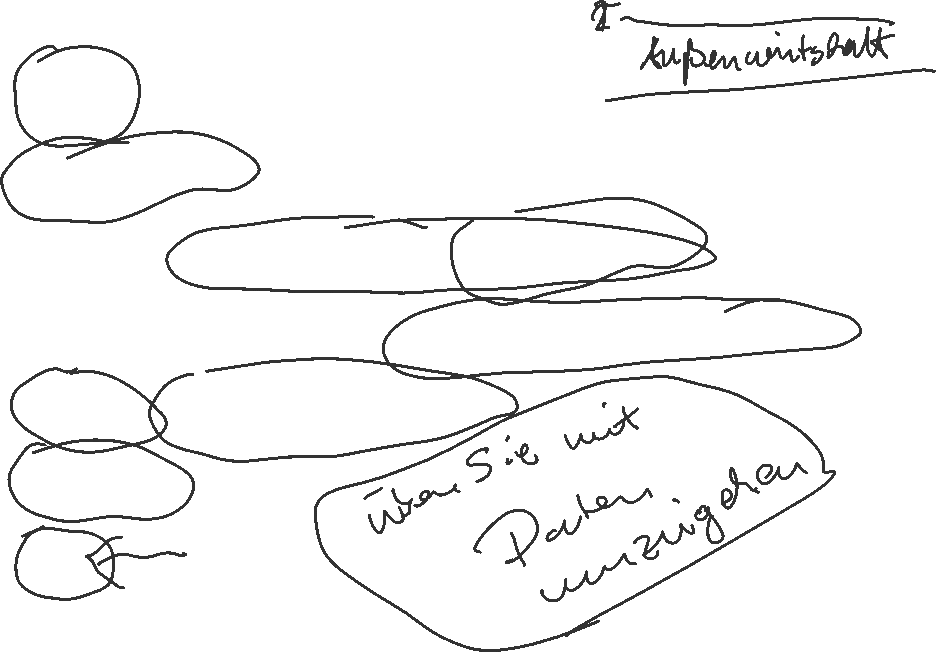 Außenwirtshaft
üben Sie mit
Daten
umzugehen